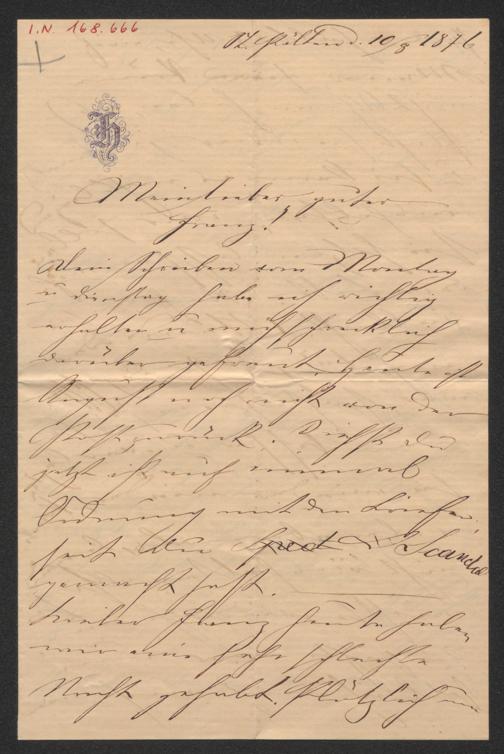 I.N. 168.666
St. Pölten d. 10/8 1876
H
Mein lieber, guter
Franz!
Dein Schreiben vom Montag
u Dienstag habe ich richtig
erhalten u mich schrecklich
darüber gefreut. Heute ist
August noch nicht von der
Post zurück. Siehst du
jetzt ist auch einmal
Ordnung mit den Briefen,
seit du Scandal
gemacht hast.
Lieber Franz heute haben
wir eine sehr schlechte
Nacht gehabt. Plötzlich um